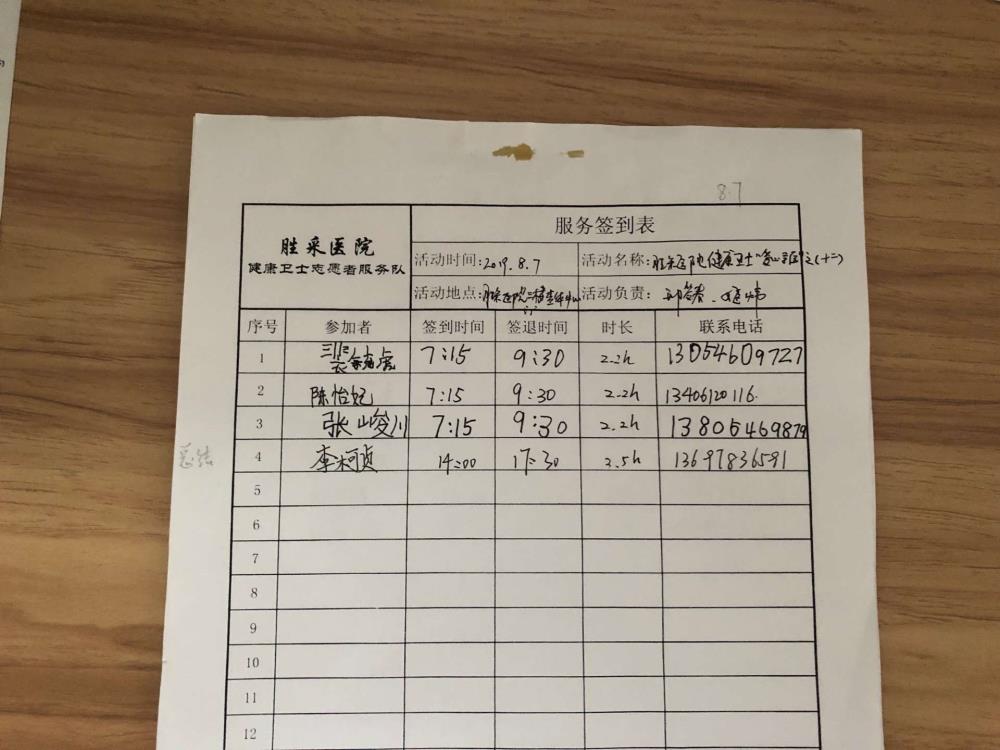 8.7
胜采医院
健康卫士志愿者服务队
服务签到表
活动时间:2019.8.7 活动名称:胜采医院健康卫士
活动地点: 活动负责:
序号 参加者 签到时间 签退时间 时长 联系电话
1 7:15 9:30 2.2h 13054609727
2 陈怡妃 7:15 9:30 2.2h 13406120116.
3 张峻川 7:15 9:30 2.2h 13805469879
总结
4 李柯贞 14:00 17:30 2.5h 13697836591
5
6
7
8
9
10
11
12